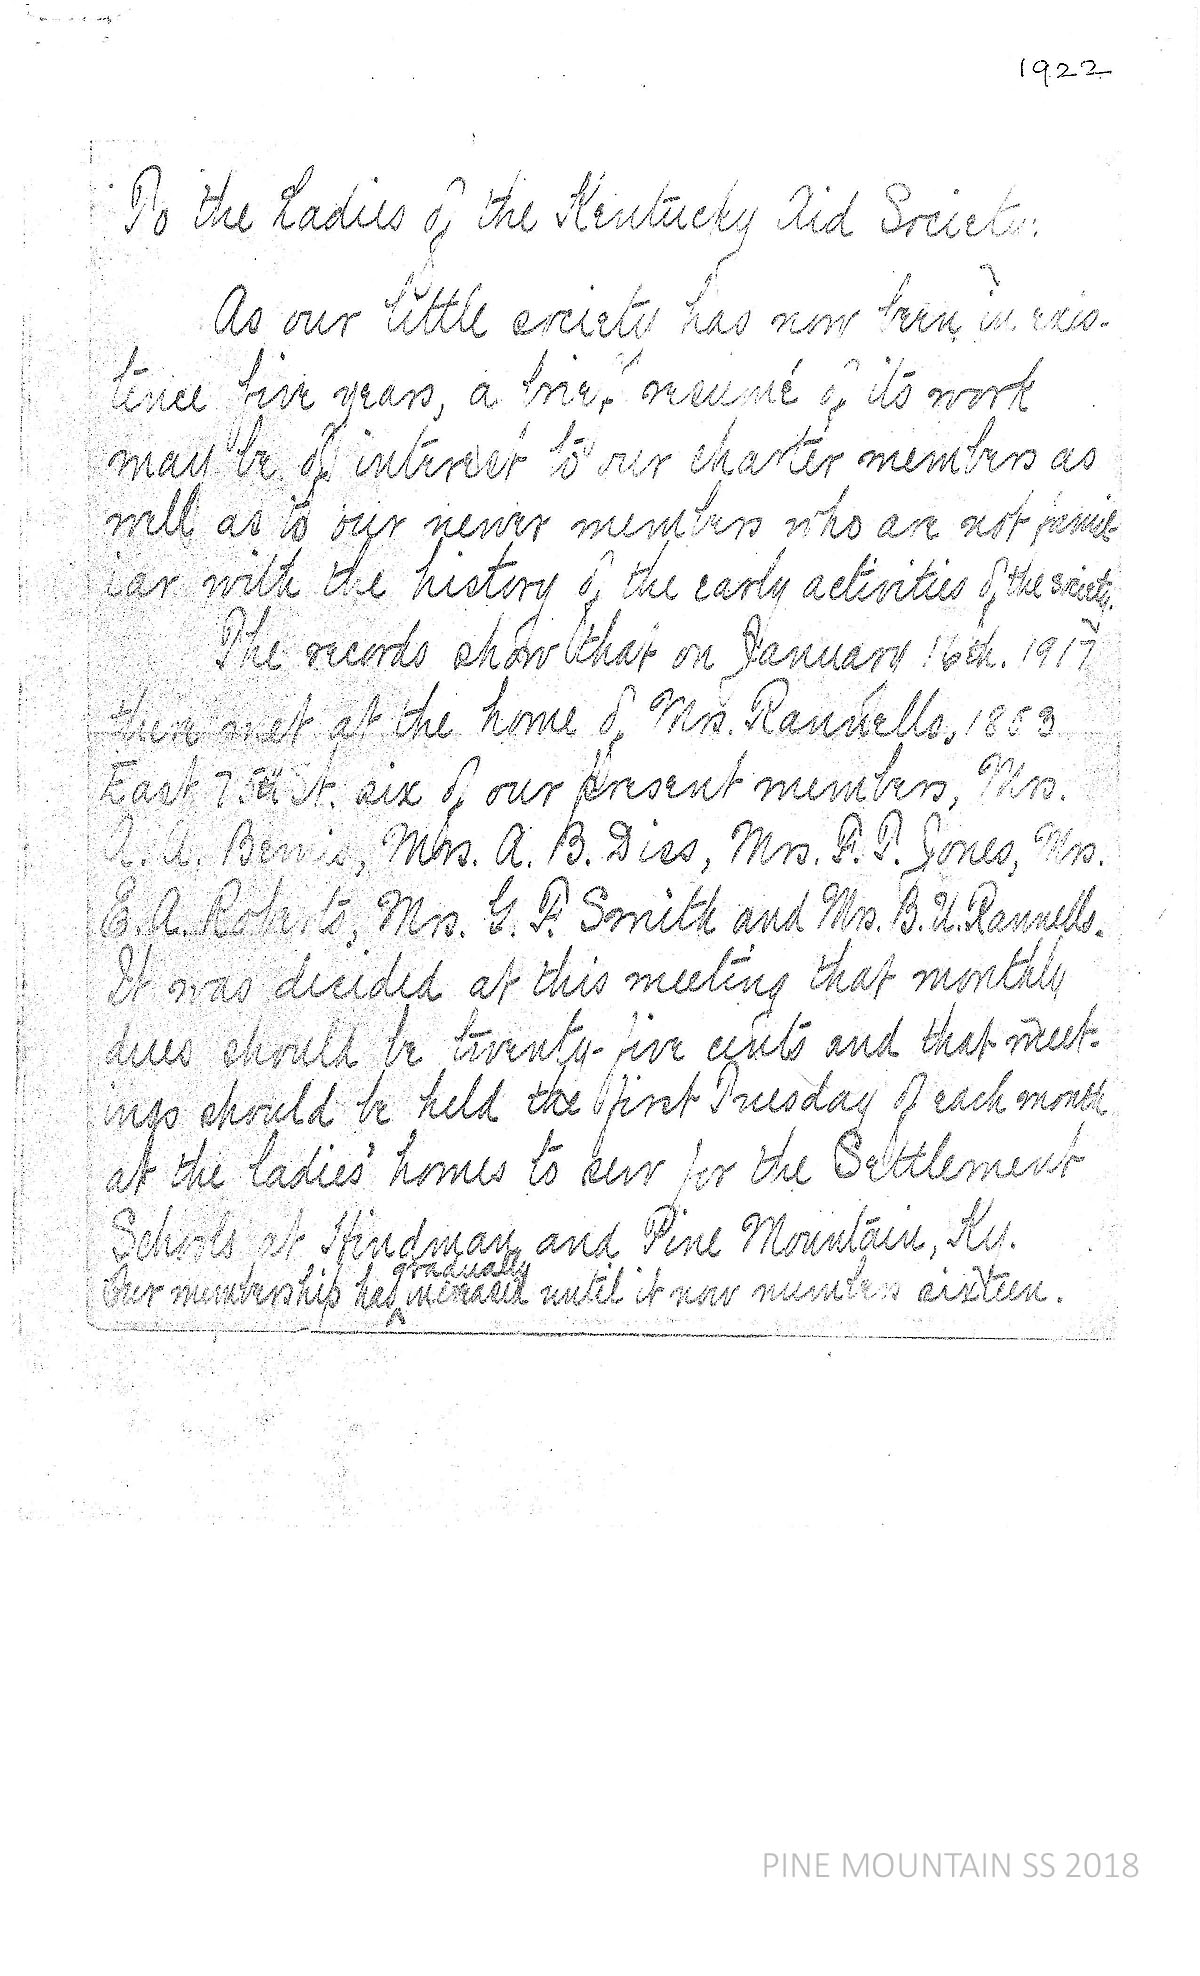 1922
To the Ladies of the Kentucky Aid Society:
As our little society has now been in exis-
tence five years, a brief resumé of its work
may be of interest to our charter members as
well as to our newer members who are not famil-
iar with the history of the early activities of the society.
The records show that on January 16th. 1917
there met at the home of Mrs. Rannells, 1853
East 75th St. six of our present members, Mrs.
A. A. Bemis, Mrs. A. B. Diss, Mrs. F. P. Jones, Mrs.
E. A. Roberts, Mrs. G. F. Smith and Mrs. B. U. Rannells.
It was decided at this meeting that monthly
dues should be twenty-five cents and that meet-
ings should be held the first Tuesday of each month
at the ladies' homes to sew for the Settlement
Schools at Hindman and Pine Mountain, Ky.
gradually
Our membership has increased until it now numbers sixteen.
PINE MOUNTAIN SS 2018